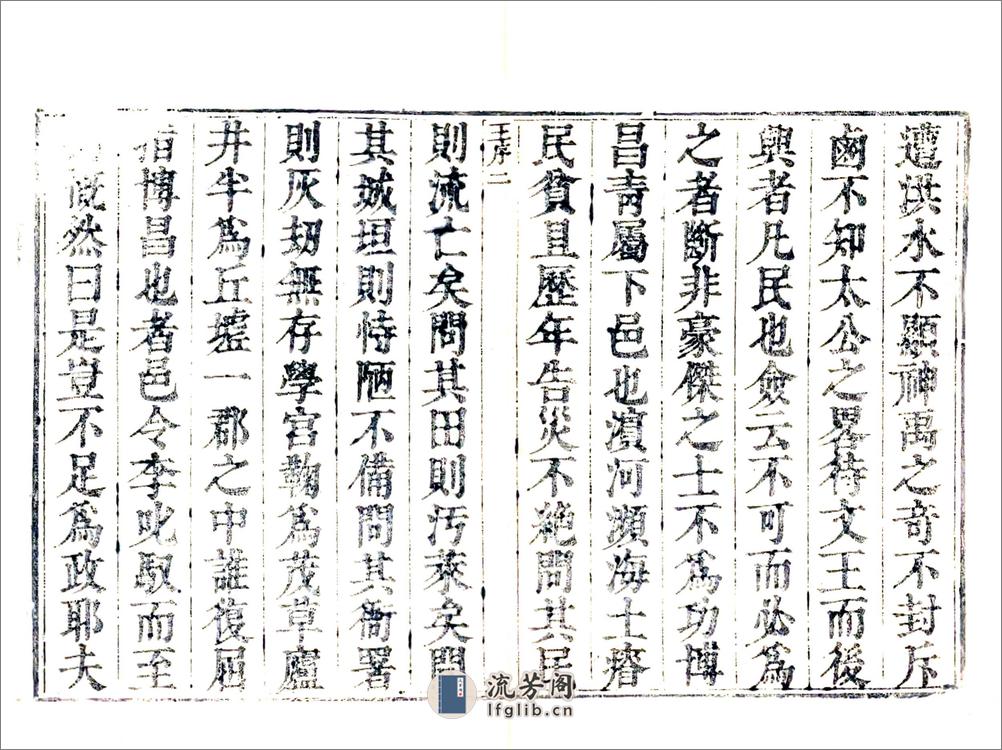 遭洪水不顯神禹之奇不封斥
鹵不知太公之畧待文王而後
興者凡民也僉云不可而必為
之者斷非豪傑之士不為功博
昌青屬下邑也濵河瀕海土瘠
民貧且歷年告災不絶問其民
王序 二
則流亡矣問其田則汚萊矣問
其城垣則恃陋不備問其衙署
則灰刼無存學宮鞠爲茂草廬
井半爲丘墟一郡之中誰復屈
指博昌也者邑令李叱馭而至
慨然曰是豈不足爲政耶夫
流芳阁
lfglib.cn